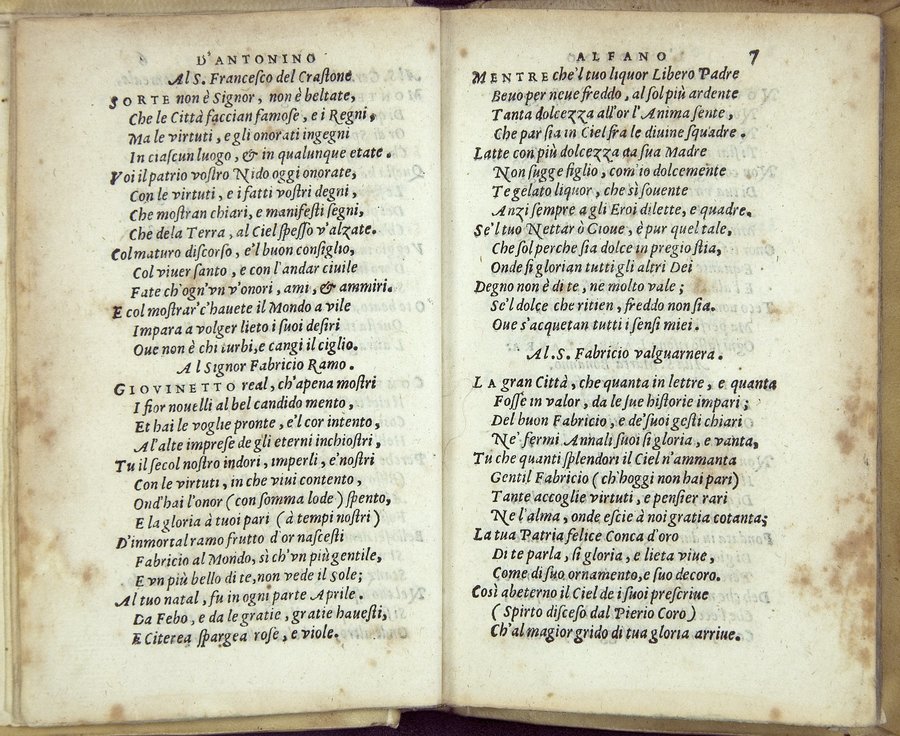 D'ANTONINO
Al S. Francesco del Crastone.
SORTE non è Signor, non è beltate,
Che le Città faccian famose, e i Regni,
Ma le virtuti, e gli onorati ingegni
In ciascun luogo, & in qualunque etate.
Voi il patrio vostro Nido oggi onorate,
Con le virtuti, e i fatti vostri degni,
Che mostran chiari, e manifesti segni,
Che dela Terra, al Ciel spesso v'alzate.
Col maturo discorso, e'l buon consiglio,
Col viuer santo, e con l'andar ciuile
Fate ch'ogn'vn v'onori, ami, & ammiri.
E col mostrar'c'hauete il Mondo a vile
Impara a volger lieto i suoi desiri
Oue non è chi turbi, e cangi il ciglio.
Al Signor Fabricio Ramo.
GIOVINETTO real, ch'apena mostri
I fior nouelli al bel candido mento,
Et hai le voglie pronte, e'l cor intento,
Al'alte imprese de gli eterni inchiostri,
Tu il secol nostro indori, imperli, e'nostri
Con le virtuti, in che viui contento,
Ond'hai l'onor (con somma lode) spento,
E la gloria à tuoi pari (à tempi nostri)
D'inmortal ramo frutto d'or nascesti
Fabricio al Mondo, sì ch'vn più gentile,
E vn più bello di te, non vede il Sole;
Al tuo natal, fu in ogni parte Aprile.
Da Febo, e da le gratie, gratie hauesti,
E Citerea spargea rose, e viole.
ALFANO 7
MENTRE che'l tuo liquor Libero Padre
Beuo per neue freddo, al sol più ardente
Tanta dolcezza all'or l'Anima sente,
Che par sia in Ciel fra le diuine squadre.
Latte con più dolcezza da sua Madre
Non sugge figlio, com'io dolcemente
Te gelato liquor, che sì souente
Anzi sempre a gli Eroi dilette, e quadre.
Se'l tuo Nettar ò Gioue, è pur quel tale,
Che sol perche sia dolce in pregio stia,
Onde si glorian tutti gli altri Dei
Degno non è di te, ne molto vale;
Se'l dolce che ritien, freddo non sia.
Oue s'acquetan tutti i sensi miei.
Al.S. Fabricio valguarnera.
LA gran Città, che quanta in lettre, e quanta
Fosse in valor, da le sue historie impari;
Del buon Fabricio, e de'suoi gesti chiari
Ne' fermi Annali suoi si gloria, e vanta,
Tu che quanti splendori il Ciel n'ammanta
Gentil Fabricio (ch'hoggi non hai pari)
Tante accoglie virtuti, e pensier rari
Ne l'alma, onde escie à noi gratia cotanta;
La tua Patria felice Conca d'oro
Di te parla, si gloria, e lieta viue,
Come di suo ornamento, e suo decoro.
Così abeterno il Ciel de i suoi prescriue
(Spirto disceso dal Pierio Coro)
Ch'al magior grido di tua gloria arriue.